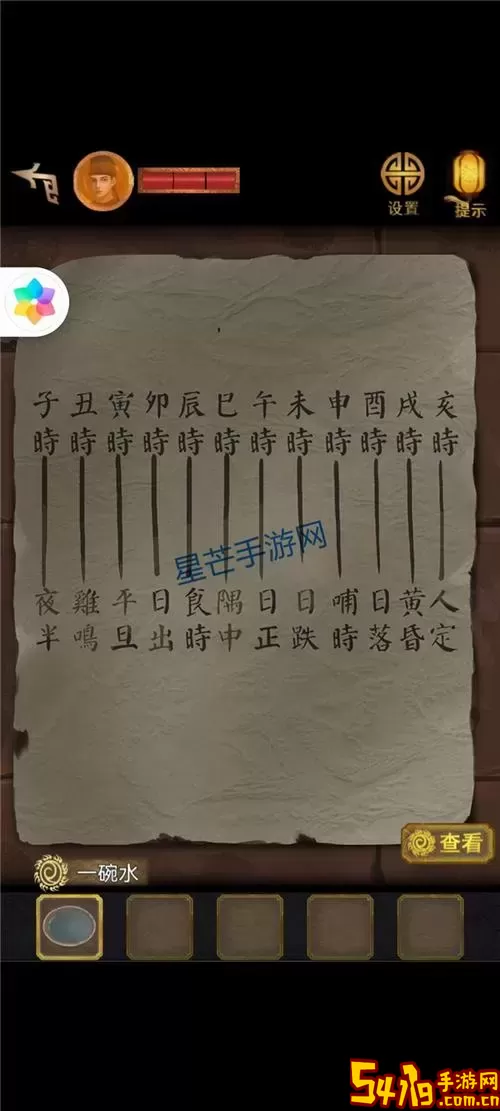 设置
提示
子 丑 寅 卯 辰 巳 午 未 申 酉 戌 亥
時 時 時 時 時 時 時 時 時 時 時 時
夜 雞 平 日 食 隅 日 日 哺 日 黄 人
半 鳴 旦 出 時 中 正 跌 時 落 昏 定
星芒手游网
查看
一碗水
5419手游网
.com.cn